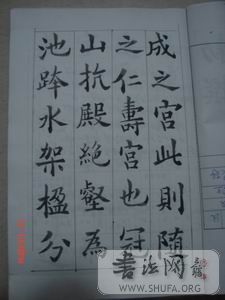 成之宫此則随
之仁壽宫也冠
山抗殿絶壑為
池跨水架楹分
書法网
WWW.SHUFA.ORG